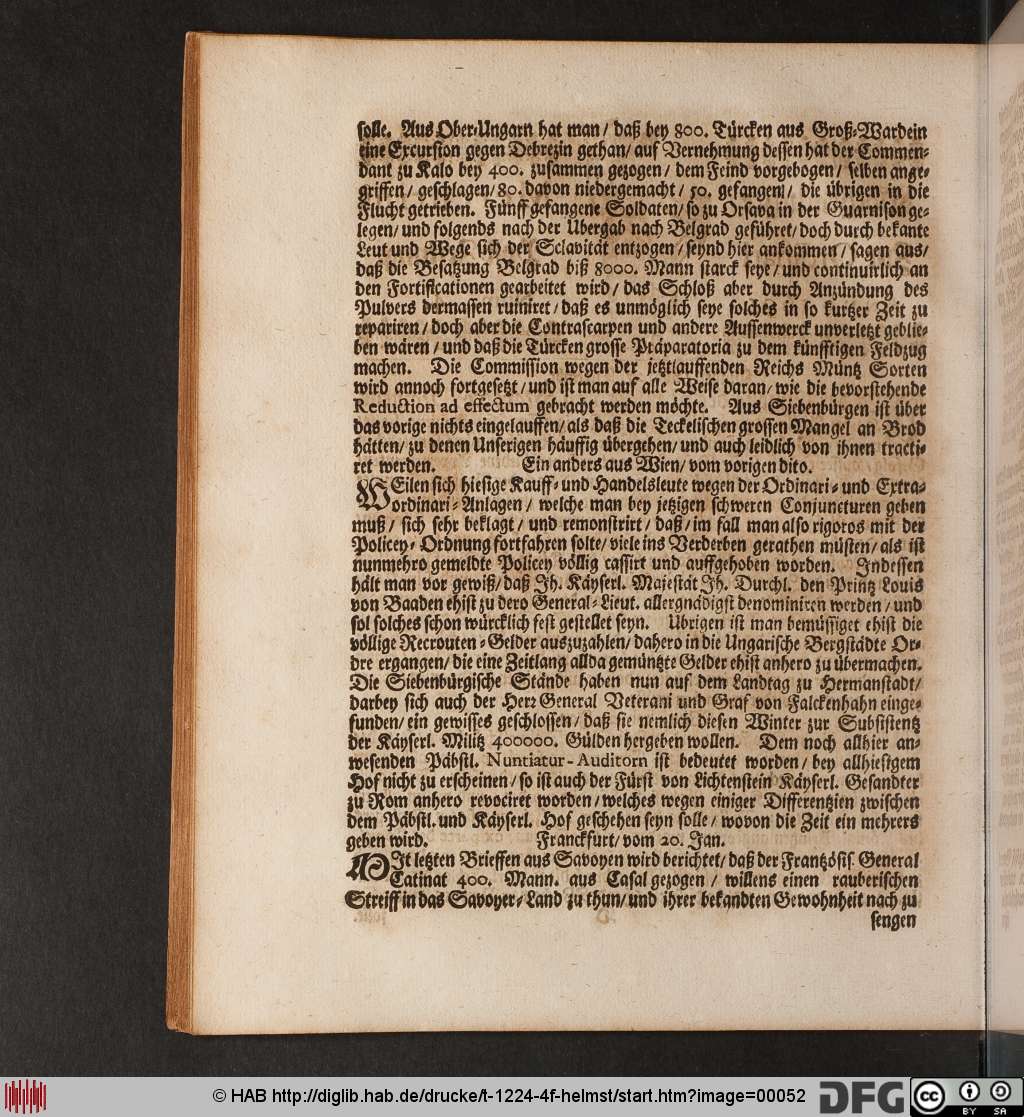 solle. Aus Ober-Ungarn hat man / daß bey 800. Türcken aus Groß-Wardein
eine Excursion gegen Debrezin gethan/ auf Vernehmung dessen hat der Commen-
dant zu Kalo bey 400. zusammen gezogen / dem Feind vorgebogen / selben ange-
griffen / geschlagen/ 80. davon niedergemacht / 50. gefangen / die übrigen in die
Flucht getrieben. Fünff gefangene Soldaten/ so zu Orsava in der Guarnison ge-
legen/ und folgends nach der Ubergab nach Belgrad geführet/ doch durch bekante
Leut und Wege sich der Sclavität entzogen / seynd hier ankommen / sagen aus/
daß die Besatzung Belgrad biß 8000. Mann starck seye / und continuirlich an
den Fortificationen gearbeitet wird / das Schloß aber durch Anzündung des
Pulvers dermassen ruiniret / daß es unmöglich seye solches in so kurtzer Zeit zu
repariren / doch aber die Contrascarpen und andere Aussenwerck unverletzt geblie-
ben wären / und daß die Türcken grosse Präparatoria zu dem künfftigen Feldzug
machen. Die Commission wegen der jetztlauffenden Reichs Müntz Sorten
wird annoch fortgesetzt / und ist man auf alle Weise daran / wie die bevorstehende
Reduction ad effectum gebracht werden möchte. Aus Siebenbürgen ist über
das vorige nichts eingelauffen/ als daß die Teckelischen grossen Mangel an Brod
hätten/ zu denen Unserigen häuffig übergehen/ und auch leidlich von ihnen tracti-
ret werden. Ein anders aus Wien/ vom vorigen dito.
WEilen sich hiesige Kauff- und Handelsleute wegen der Ordinari- und Extra-
ordinari-Anlagen / welche man bey jetzigen schweren Conjuncturen geben
muß / sich sehr beklagt / und remonstrirt / daß / im fall man also rigoros mit der
Policey-Ordnung fortfahren solte/ viele ins Verderben gerathen müsten/ als ist
nunmehro gemeldte Policey völlig cassirt und auffgehoben worden. Indessen
hält man vor gewiß/ daß Ih. Käyserl. Majestät Ih. Durchl. den Printz Louis
von Baaden ehist zu dero General-Lieut. allergnädigst denominiren werden / und
sol solches schon würcklich fest gestellet seyn. Ubrigen ist man bemüssiget ehist die
völlige Recrouten-Gelder auszuzahlen/ dahero in die Ungarische Bergstädte Or-
dre ergangen/ die eine Zeitlang allda gemüntzte Gelder ehist anhero zu übermachen.
Die Siebenbürgische Stände haben nun auf dem Landtag zu Hermanstadt/
darbey sich auch der Herr General Veterani und Graf von Falckenhahn einge-
funden/ ein gewisses geschlossen / daß sie nemlich diesen Winter zur Subsistentz
der Käyserl. Militz 400000. Gülden hergeben wollen. Dem noch allhier an-
wesenden Päbstl. Nuntiatur-Auditorn ist bedeutet worden/ bey allhiesigem
Hof nicht zu erscheinen / so ist auch der Fürst von Lichtenstein Käyserl. Gesandter
zu Rom anhero revociret worden / welches wegen einiger Differentzien zwischen
dem Päbstl. und Käyserl. Hof geschehen seyn solle / wovon die Zeit ein mehrers
geben wird. Franckfurt/ vom 20. Jan.
MIt letzten Brieffen aus Savoyen wird berichtet/ daß der Frantzösis. General
Catinat 400. Mann. aus Casal gezogen / willens einen rauberischen
Streiff in das Savoyer-Land zu thun/ und ihrer bekandten Gewohnheit nach zu
sengen
© HAB http://diglib.hab.de/drucke/t-1224-4f-helmst/start.htm?image=00052
DFG
cc
BY SA